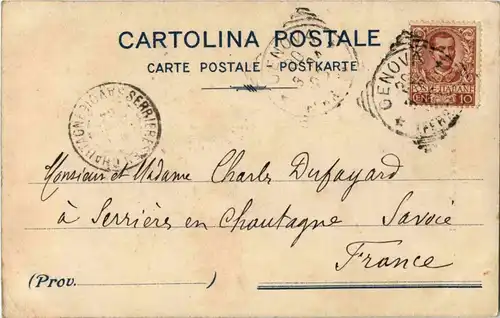 CARTOLINA POSTALE
CARTE POSTALE POSTKARTE
GENOVA
GENOVA
POSTE ITALIANE
CENT. 10
Monsieur et Madame Charles Dufayard
à Serrières en Chautagne Savoie
France
(Prov. )